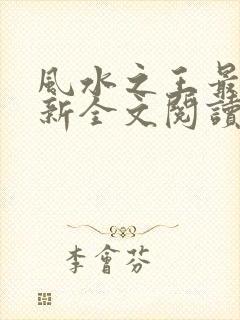 風水之王最
新全文閱讀
李會芬